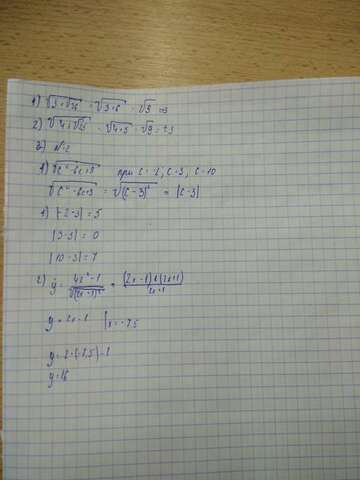 1) √3+√36 = √3+6 = √9 = 3
2) √4+√25 = √4+5 = √9 = ±3
3) N2
1) √c²-6c+9 при c=-2, c=3, c=10
√c²-6c+9 = √(c-3)² = |c-3|
1) |-2-3| = 5
|3-3| = 0
|10-3| = 7
2) y = 4x²-1 / √(2x+1)² = (2x-1)(2x+1) / 2x+1
y = 2x-1 | x = -7,5
y = 2·(-7,5)-1
y = 16